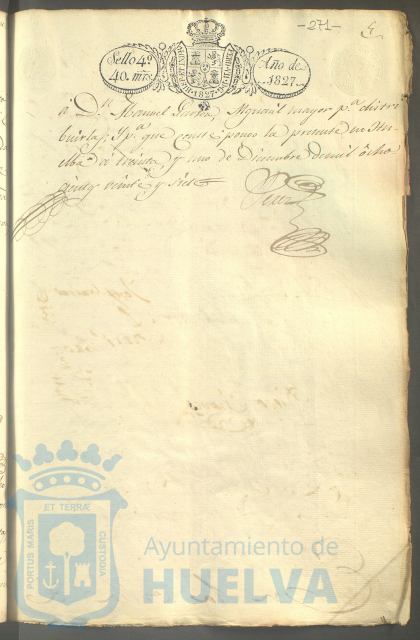 -271-
Sello 4º
40. mrs.
Año de
1827.
1827
á Dn. Manuel Alguacil mayor pª distri
buirlas; Y pª que conste pongo la presente en Hu
elba á treinta y uno de Diciembre de mil ocho
cientos veinte y siete
ET TERRÆ
PORTUS MARIS
CUSTODIA
Ayuntamiento de
HUELVA